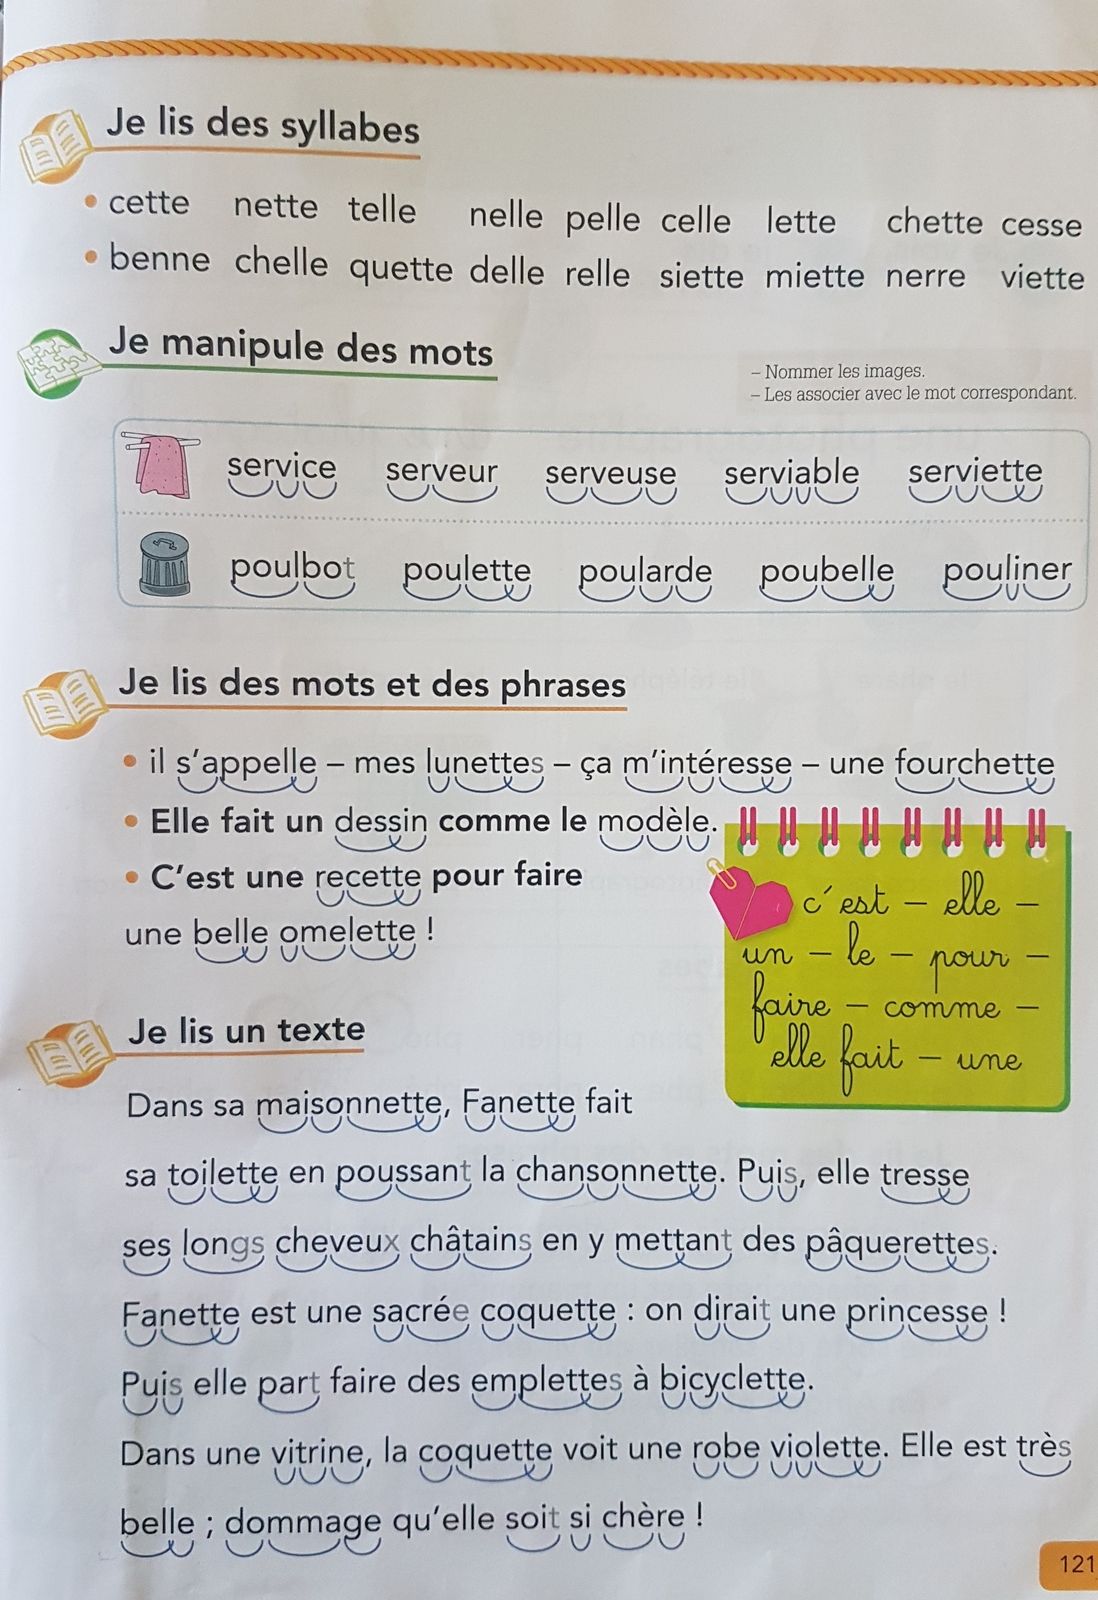 Je lis des syllabes
• cette nette telle nelle pelle celle lette chette cesse
• benne chelle quette delle relle siette miette nerre viette
Je manipule des mots
– Nommer les images.
– Les associer avec le mot correspondant.
service serveur serveuse serviable serviette
poulbot poulette poularde poubelle pouliner
Je lis des mots et des phrases
• il s'appelle – mes lunettes – ça m'intéresse – une fourchette
• Elle fait un dessin comme le modèle.
• C'est une recette pour faire
une belle omelette !
c'est – elle –
un – le – pour –
faire – comme –
elle fait – une
Je lis un texte
Dans sa maisonnette, Fanette fait
sa toilette en poussant la chansonnette. Puis, elle tresse
ses longs cheveux châtains en y mettant des pâquerettes.
Fanette est une sacrée coquette : on dirait une princesse !
Puis elle part faire des emplettes à bicyclette.
Dans une vitrine, la coquette voit une robe violette. Elle est très
belle ; dommage qu'elle soit si chère !
121